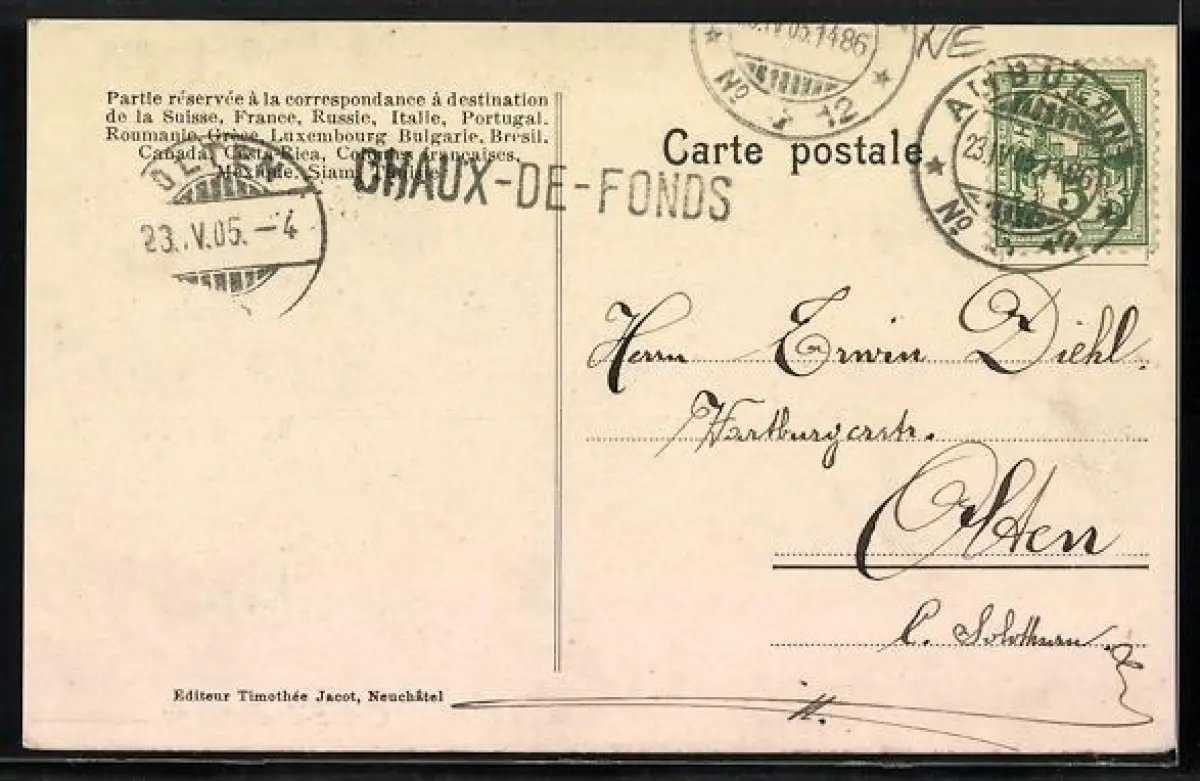 Partie réservée à la correspondance à destination
de la Suisse, France, Russie, Italie, Portugal.
Roumanie, Grèce, Luxembourg Bulgarie, Bresil.
Canada, Costa-Rica, Colonies françaises,
Mexique, Siam,
OLTEN
23. V.05.-4
CHAUX-DE-FONDS
23.IV.05.1486
No 12
NE
Carte postale
AMBULANT
23.IV.05.1486
No
5
Herrn Erwin Diehl.
Wartburgerstr.
Olten
C. Solothurn.
Editeur Timothée Jacot, Neuchâtel